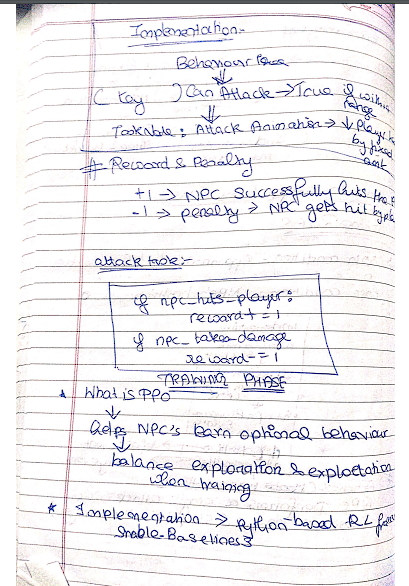 Implementation:-
Behaviour Tree
( Key ) Can Attack → True if within
range
TaskNode : Attack Animation → ↓ Player's
by fixed
amt
# Reward & Penalty
+1 → NPC successfully hits the
-1 → penalty → NPC gets hit by
attack task:-
if npc_hits_player:
reward + = 1
if npc_takes_damage
reward -= 1
TRAINING PHASE
What is PPO
↓
Helps NPC's learn optional behaviour
↓
balance exploration & exploitation
when training
* Implementation → Python-based RL
Stable-Baselines3